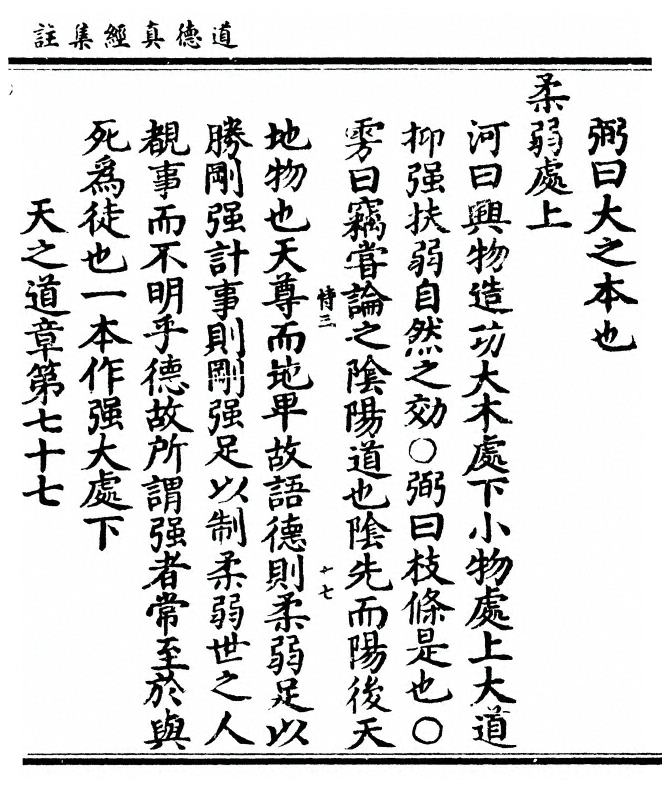 道德真經集註
弼曰大之本也
柔弱處上
河曰興物造功大木處下小物處上大道
抑强扶弱自然之効○弼曰枝條是也○
雱曰竊嘗論之陰陽道也陰先而陽後天
恃三
十七
地物也天尊而地卑故語德則柔弱足以
勝剛强計事則剛强足以制柔弱世之人
覩事而不明乎德故所謂强者常至於與
死爲徒也一本作强大處下
天之道章第七十七